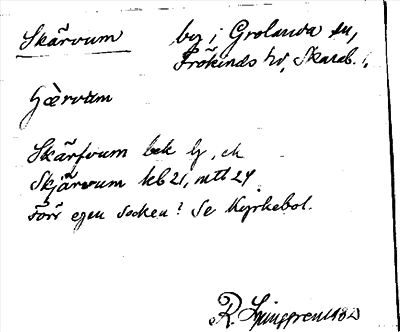 Skärvum by i Grolanda sn,
Frökinds hd, Skarab. l.
Skärfvum bek ly, ek
Skjärvum kb 21, mtl 24
Förr egen socken? Se Kyrkebol.
R. Ljunggren 1182